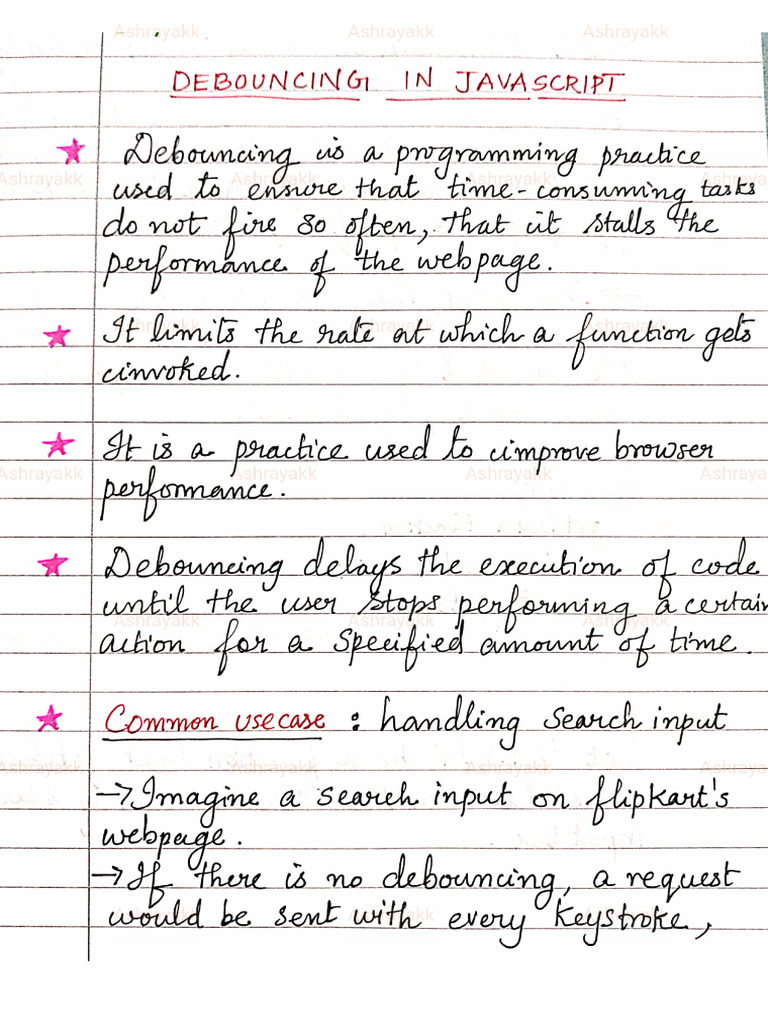 Ashrayakk Ashrayakk Ashrayakk
DEBOUNCING IN JAVASCRIPT
★ Debouncing is a programming practice
Ashrayakk Ashrayakk Ashrayakk Ashrayakk
used to ensure that time-consuming tasks
do not fire so often, that it stalls the
performance of the webpage.
Ashrayakk Ashrayakk Ashrayakk
★ It limits the rate at which a function gets
invoked.
★ It is a practice used to improve browser
Ashrayakk Ashrayakk Ashrayakk Ashrayakk
performance.
★ Debouncing delays the execution of code
until the user stops performing a certain
Ashrayakk Ashrayakk Ashrayakk
action for a specified amount of time.
★ Common usecase : handling search input
Ashrayakk Ashrayakk Ashrayakk Ashrayakk
→ Imagine a search input on flipkart's
webpage.
→ If there is no debouncing, a request
would be sent with every keystroke,
Ashrayakk Ashrayakk Ashrayakk